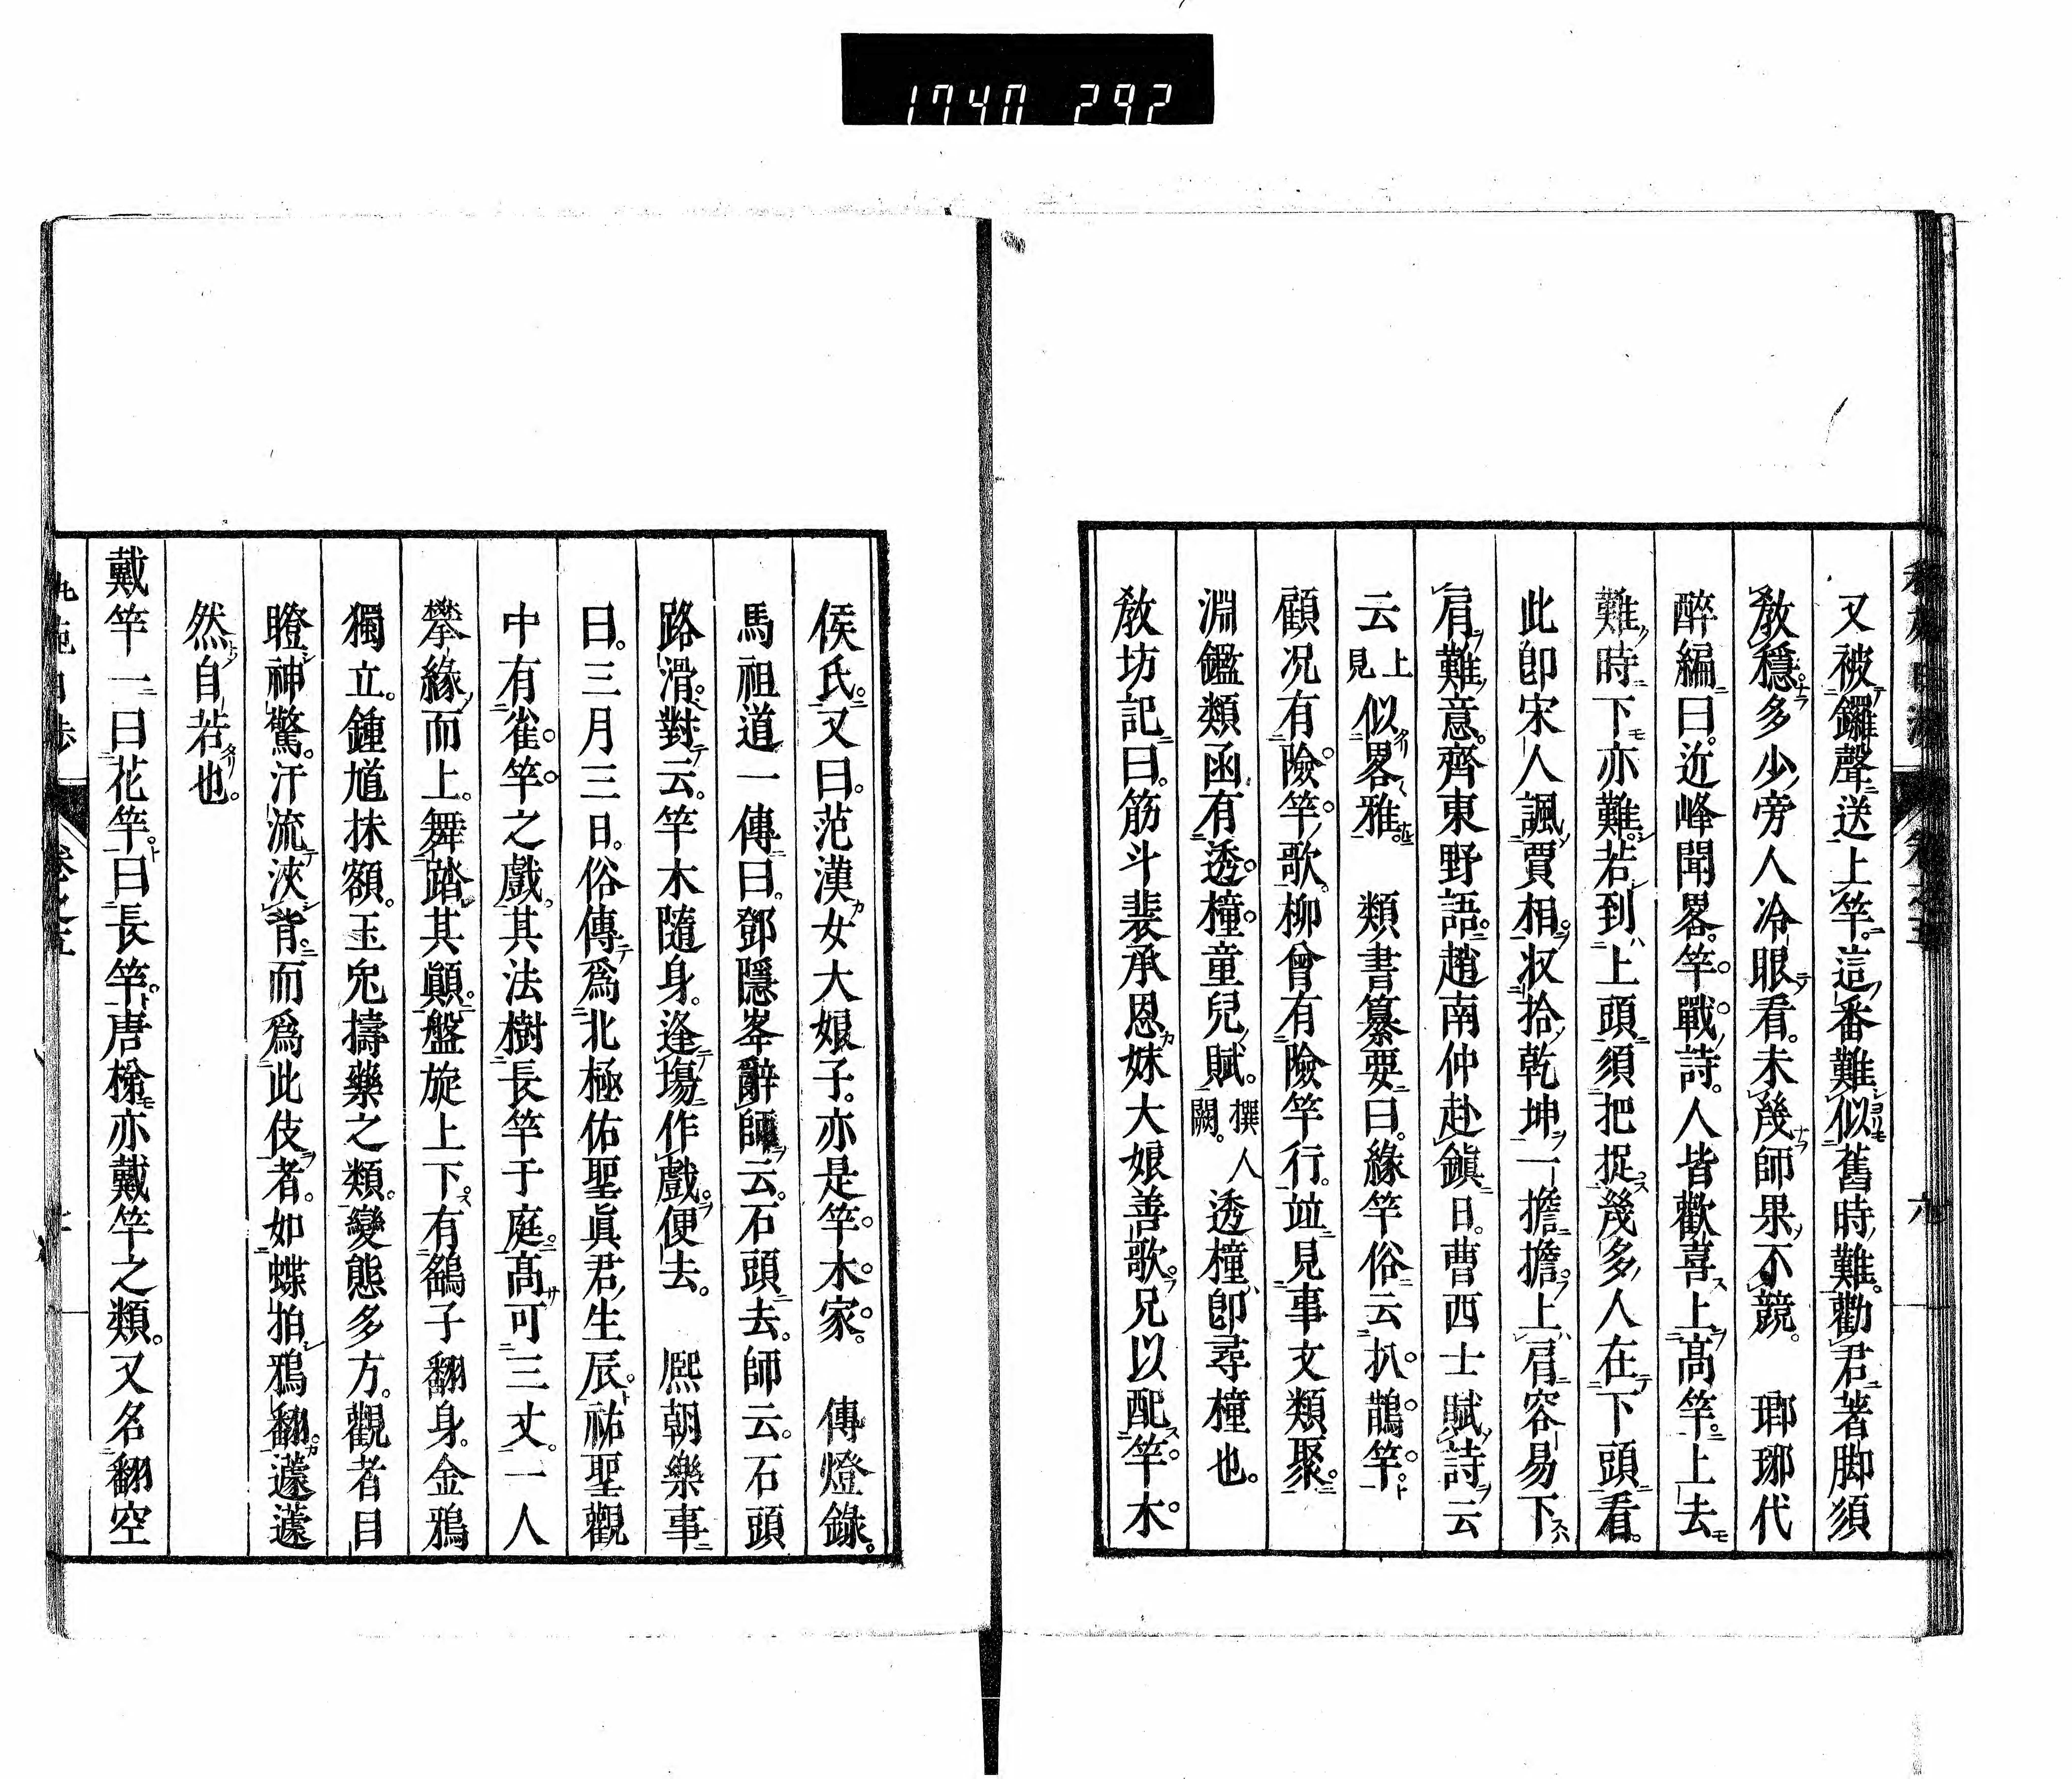 1740 292
又被鑼聲送上竿。這番難似舊時難。勸君著脚須
教穩。多少旁人冷眼看。未幾師果不競。 瑯琊代
醉編曰。近峰聞畧。竿戰詩。人皆歡喜上髙竿。上去
難時下亦難。若到上頭須把捉幾多人在下頭看。
此卽宋人諷賈相。収拾乾坤一擔擔。上肩容易下
肩難意。齊東野語。趙南仲赴鎭日。曹西士賦詩云
云見上似畧雅。 類書纂要曰。緣竿俗云扒鵲竿。
顧况有險竿歌。柳曾有險竿行。竝見事文類聚。
淵鑑類函有透橦童兒賦。撰人闕。透橦卽尋橦也。
教坊記曰。筋斗裴承恩妹大娘善歌。兄以配竿木。
侯氏。又曰。范漢女大娘子。亦是竿木家。 傳燈錄。
馬祖道一傳曰。鄧隱峯辭師云。石頭去。師云。石頭
路滑。對云。竿木隨身。逢塲作戲。便去。 熈朝樂事
曰。三月三日。俗傳爲北極佑聖眞君生辰。祐聖觀
中有雀竿之戲。其法樹長竿于庭。髙可三丈。一人
攀緣而上。舞踏其顚。盤旋上下。有鷂子翻身。金鴉
獨立。鍾馗抹額。玉兎擣藥之類。變態多方。觀者目
瞪神驚。汗流浹背。而爲此伎者。如蝶拍鴉翻。蘧蘧
然自若也。
戴竿一曰花竿。曰長竿。唐梯亦戴竿之類。又名翻空